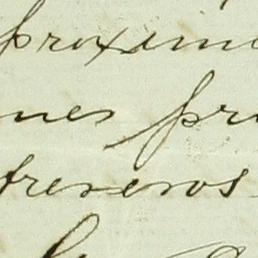 proxim
nes pr
treseros